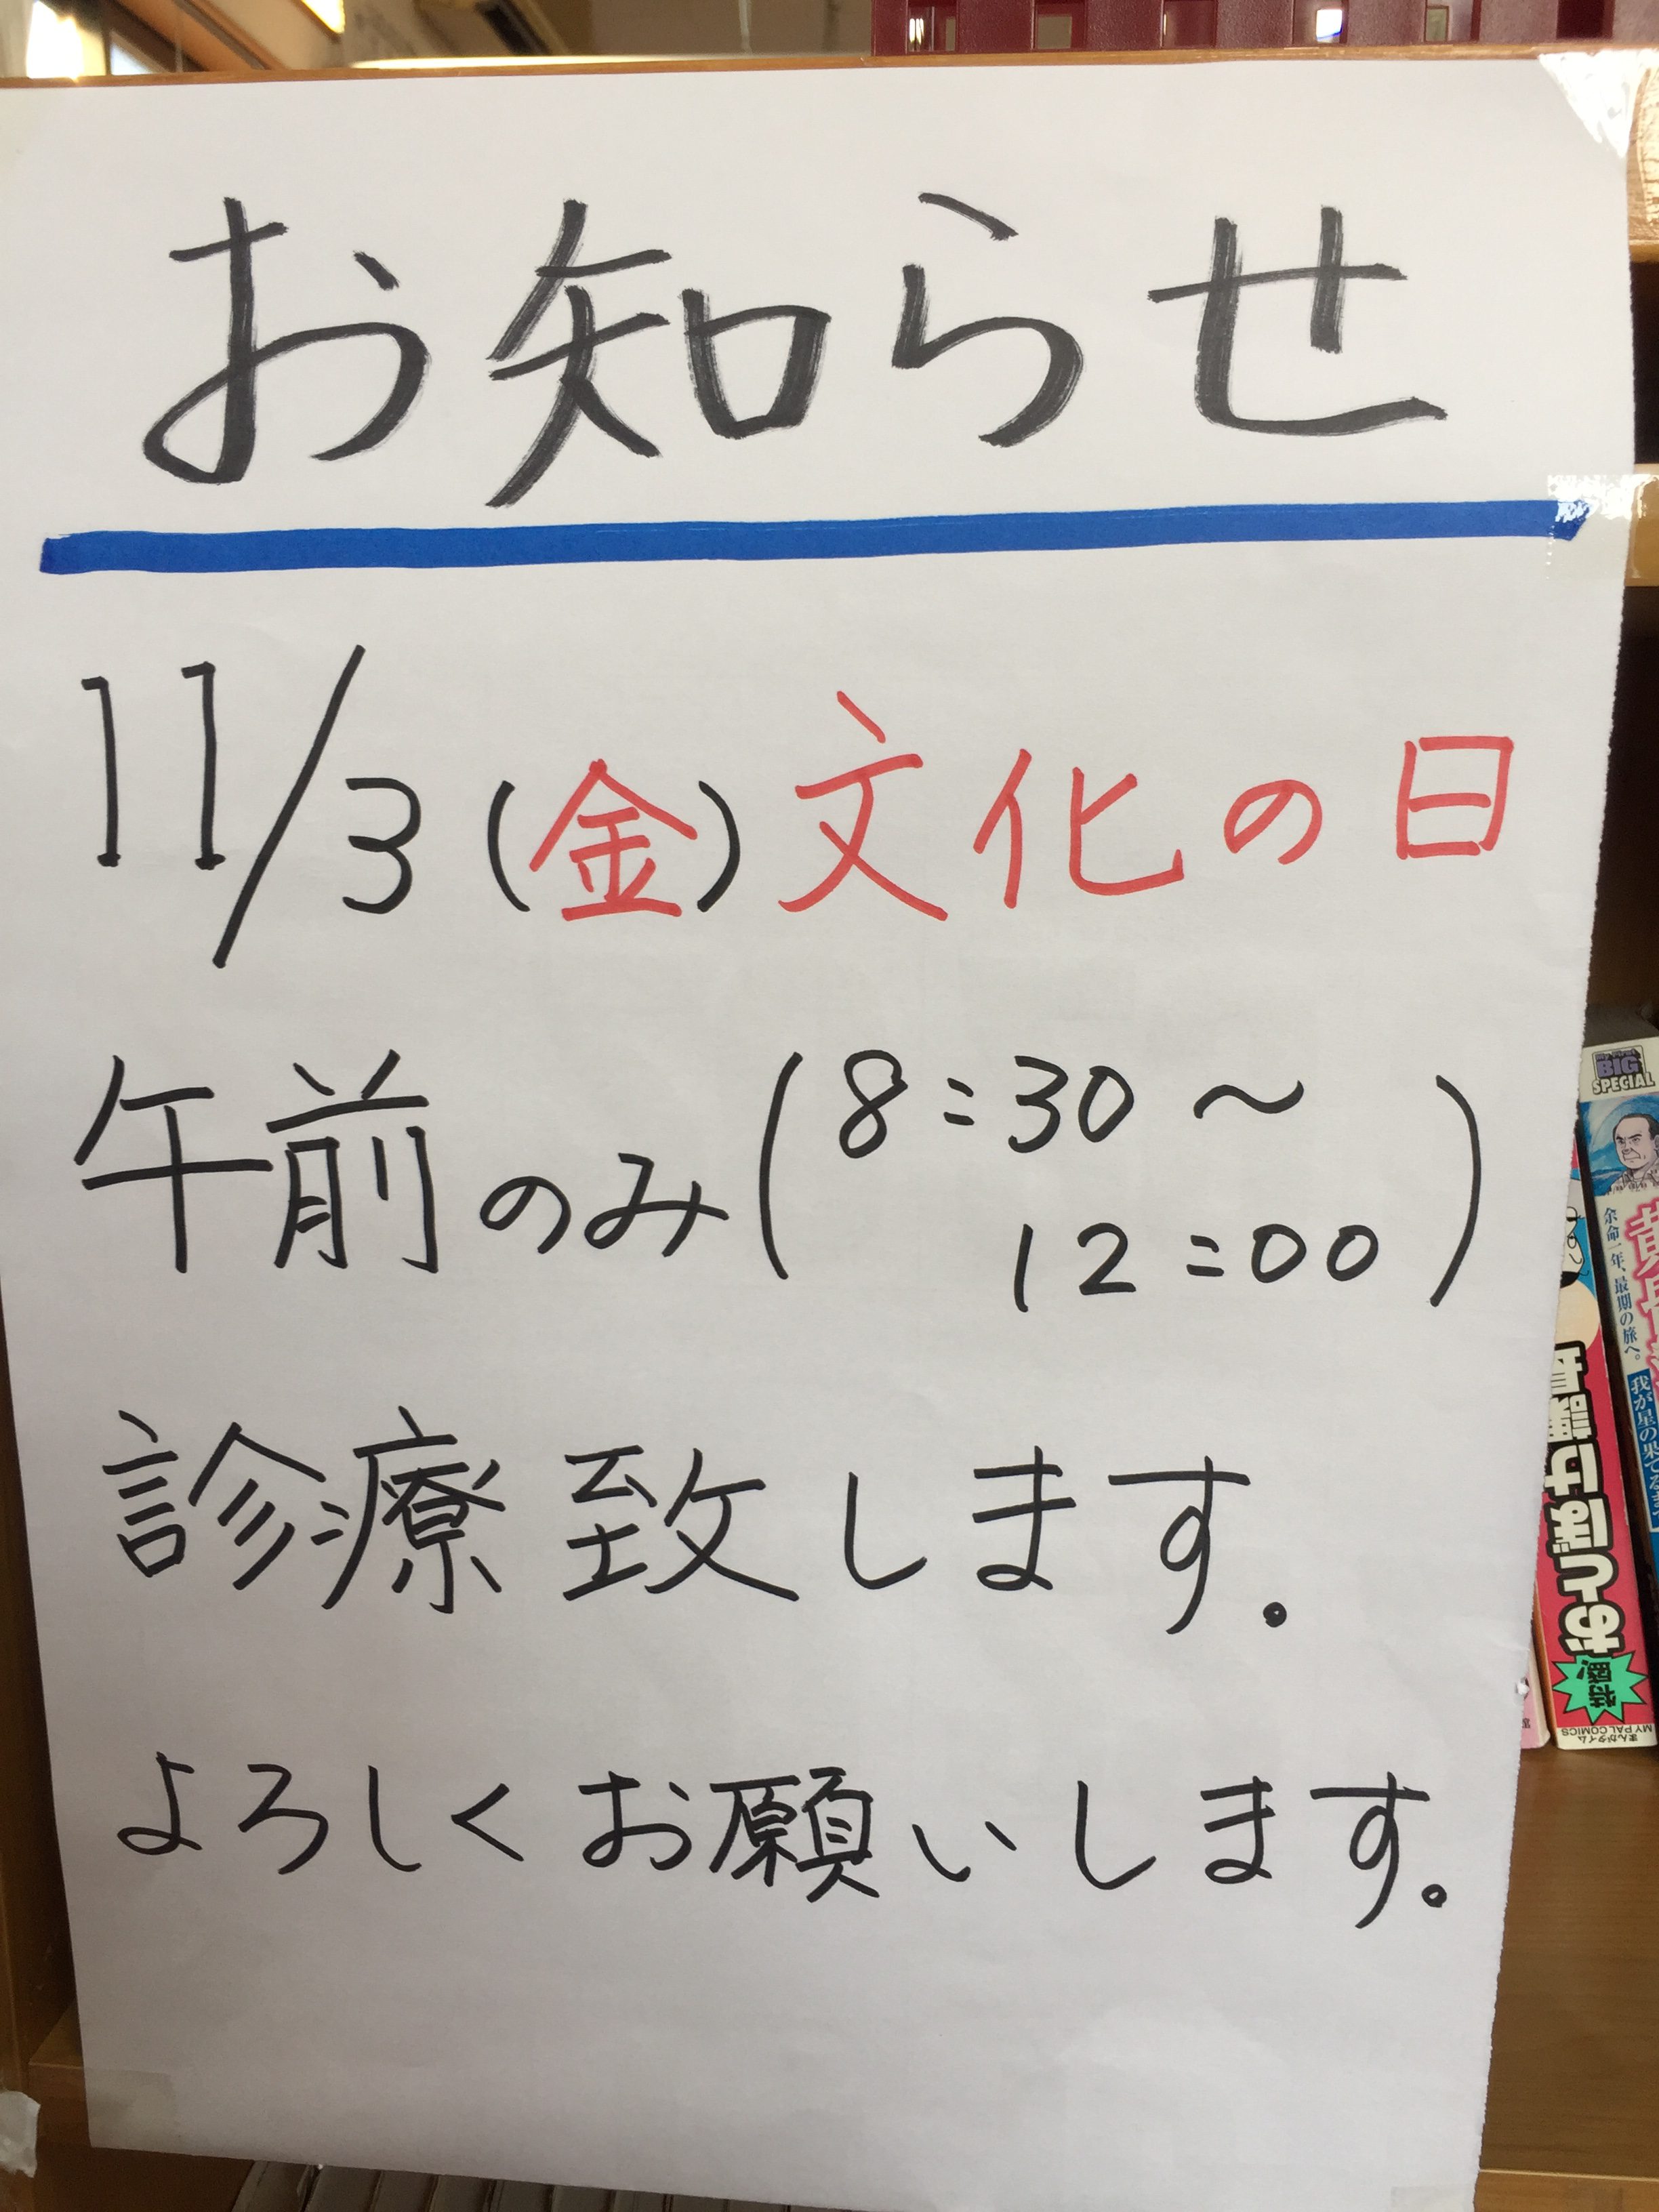 お知らせ
11/3(金)文化の日
午前のみ(8:30～
12:00)
診療致します。
よろしくお願いします。
My First
BIG
SPECIAL
余命一年、最期の旅へ。
特盛!
まんがタイム
MY PAL COMICS